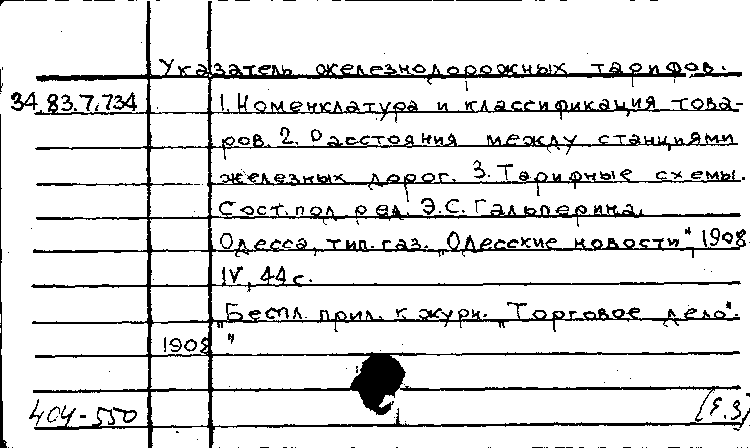 Указатель железнодорожных тарифов.
34.83.7.734 1. Номенклатура и классификация това-
ров. 2. Расстояния между станциями
железных дорог. 3. Тарифные схемы.
Сост. под ред. Э.С. Гальперина.
Одесса, тип. газ. „Одесские новости", 1908
IV, 44 с.
„Беспл. прил. к журн. „Торговое дело".
1908 "
404-550 [Е.З]